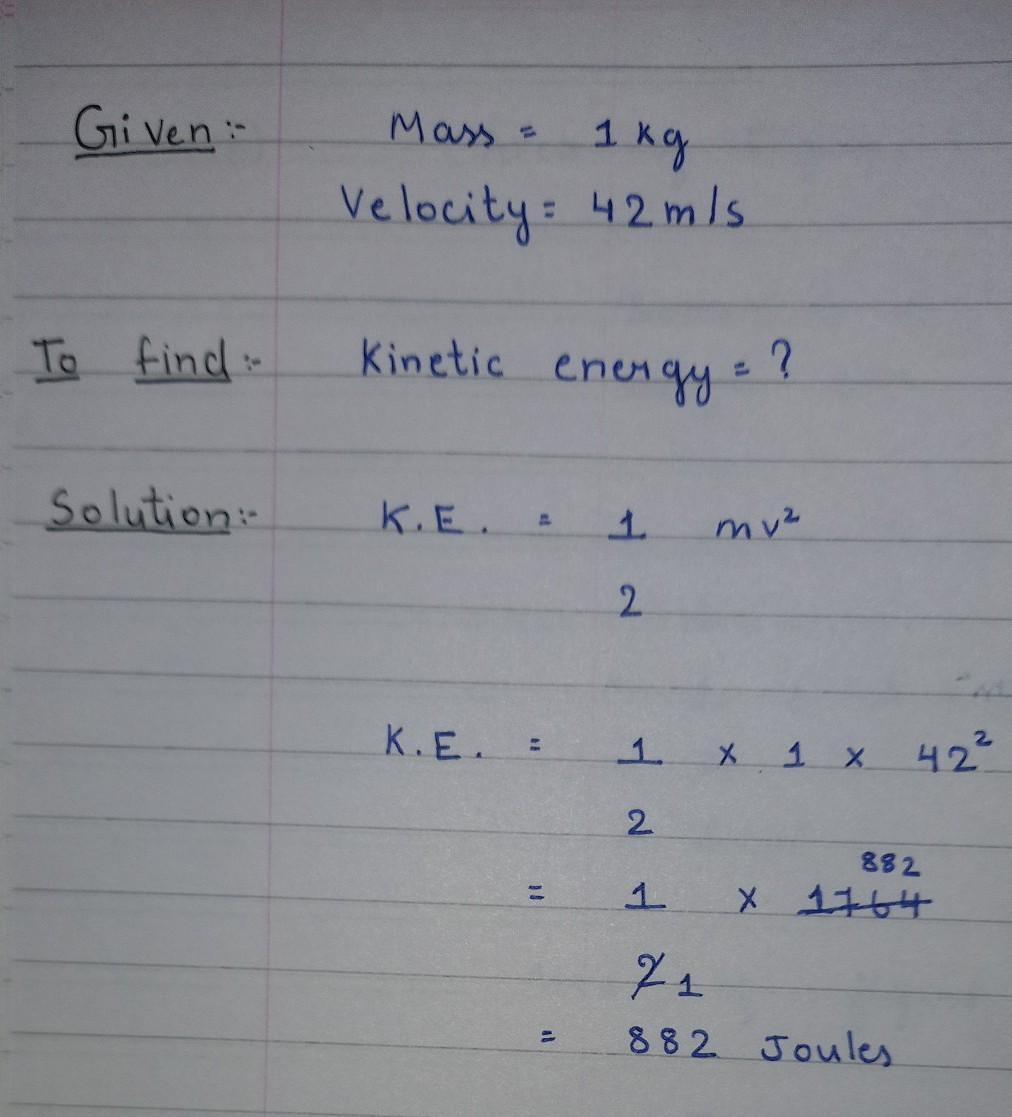 Given :- Mass = 1 kg
Velocity = 42 m/s
To find :- Kinetic energy = ?
Solution :- K.E. = 1 mv²
2
K.E. = 1 x 1 x 42²
2
882
= 1 x 1764
2 1
= 882 Joules